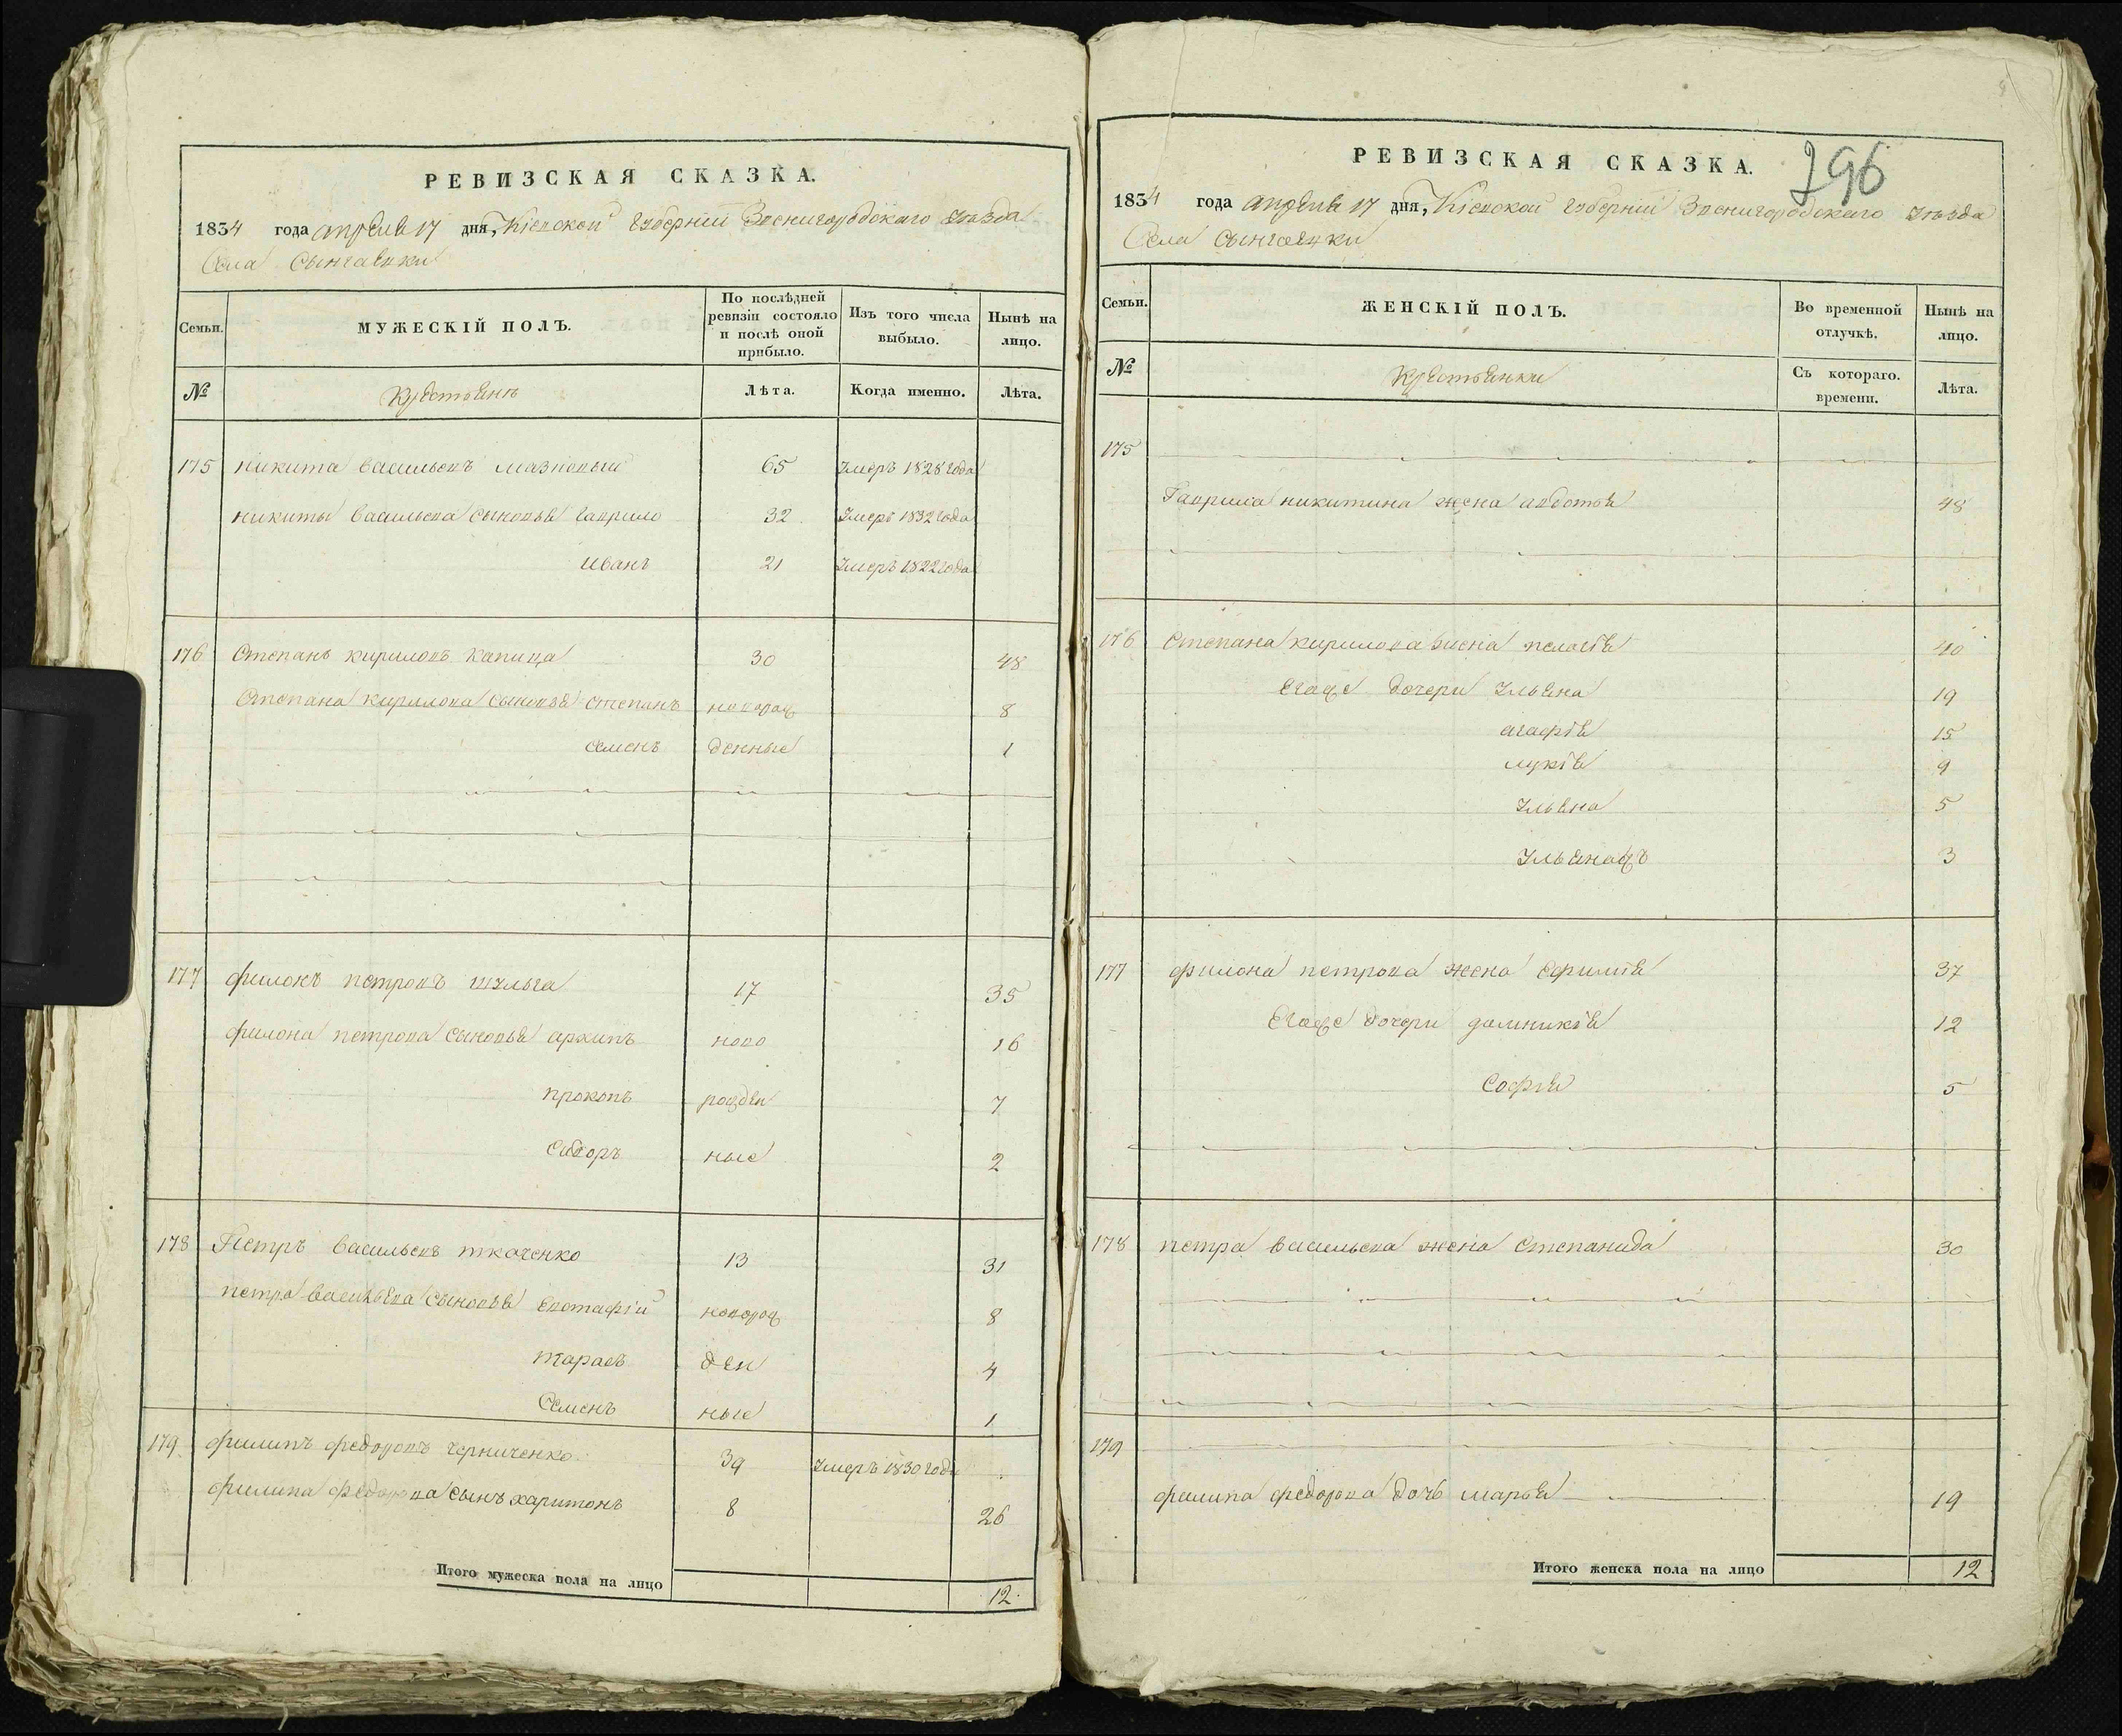 РЕВИЗСКАЯ СКАЗКА.
1834 года апреля 17 дня, Кіевской Губерніи Звенигородскаго уѣзда
Села Сынгаевки
Семьи.
МУЖЕСКІЙ ПОЛЪ.
По послѣдней ревизіи состояло и послѣ оной прибыло.
Изъ того числа выбыло.
Нынѣ на лицо.
№
Крестьянъ
Лѣта.
Когда именно.
Лѣта.
175 никита васильевъ 65 Умеръ 1828 года
никиты васильева сыновья гаврило 32 Умеръ 1832 года
иванъ 21 Умеръ 1822 года
176 Степанъ кириловъ капица 30 48
Степана кирилова сыновья степанъ новорож 8
семенъ денные 1
177 филонъ петровъ шульга 17 35
филона петрова сыновья архипъ ново 16
прокопъ рожден 7
сидоръ ные 2
178 Петръ васильевъ ткаченко 13 31
петра васильева сыновья евстафій новорож 8
тарасъ ден 4
Семенъ ные 1
179 филипъ федоровъ черниченко 39 Умеръ 1830 года
филипа федорова сынъ харитонъ 8 26
Итого мужеска пола на лицо 12.
296
РЕВИЗСКАЯ СКАЗКА.
1834 года апреля 17 дня, Кіевской Губерніи Звенигородскаго уѣзда
Села Сынгаевки
Семьи.
ЖЕНСКІЙ ПОЛЪ.
Во временной отлучкѣ.
Нынѣ на лицо.
№
Крестьянки
Съ котораго. времени.
Лѣта.
175
Гаврила никитина жена авдотья 48
176 Степана кирилова жена пелагія 40
Егоже дочери Ульяна 19
агафія 15
лукія 9
Ульяна 5
Ульянажъ 3
177 филона петрова жена ефимія 37
Егоже дочери домникія 12
Софія 5
178 петра васильева жена степанида 30
179
филипа федорова дочь марья 19
Итого женска пола на лицо 12